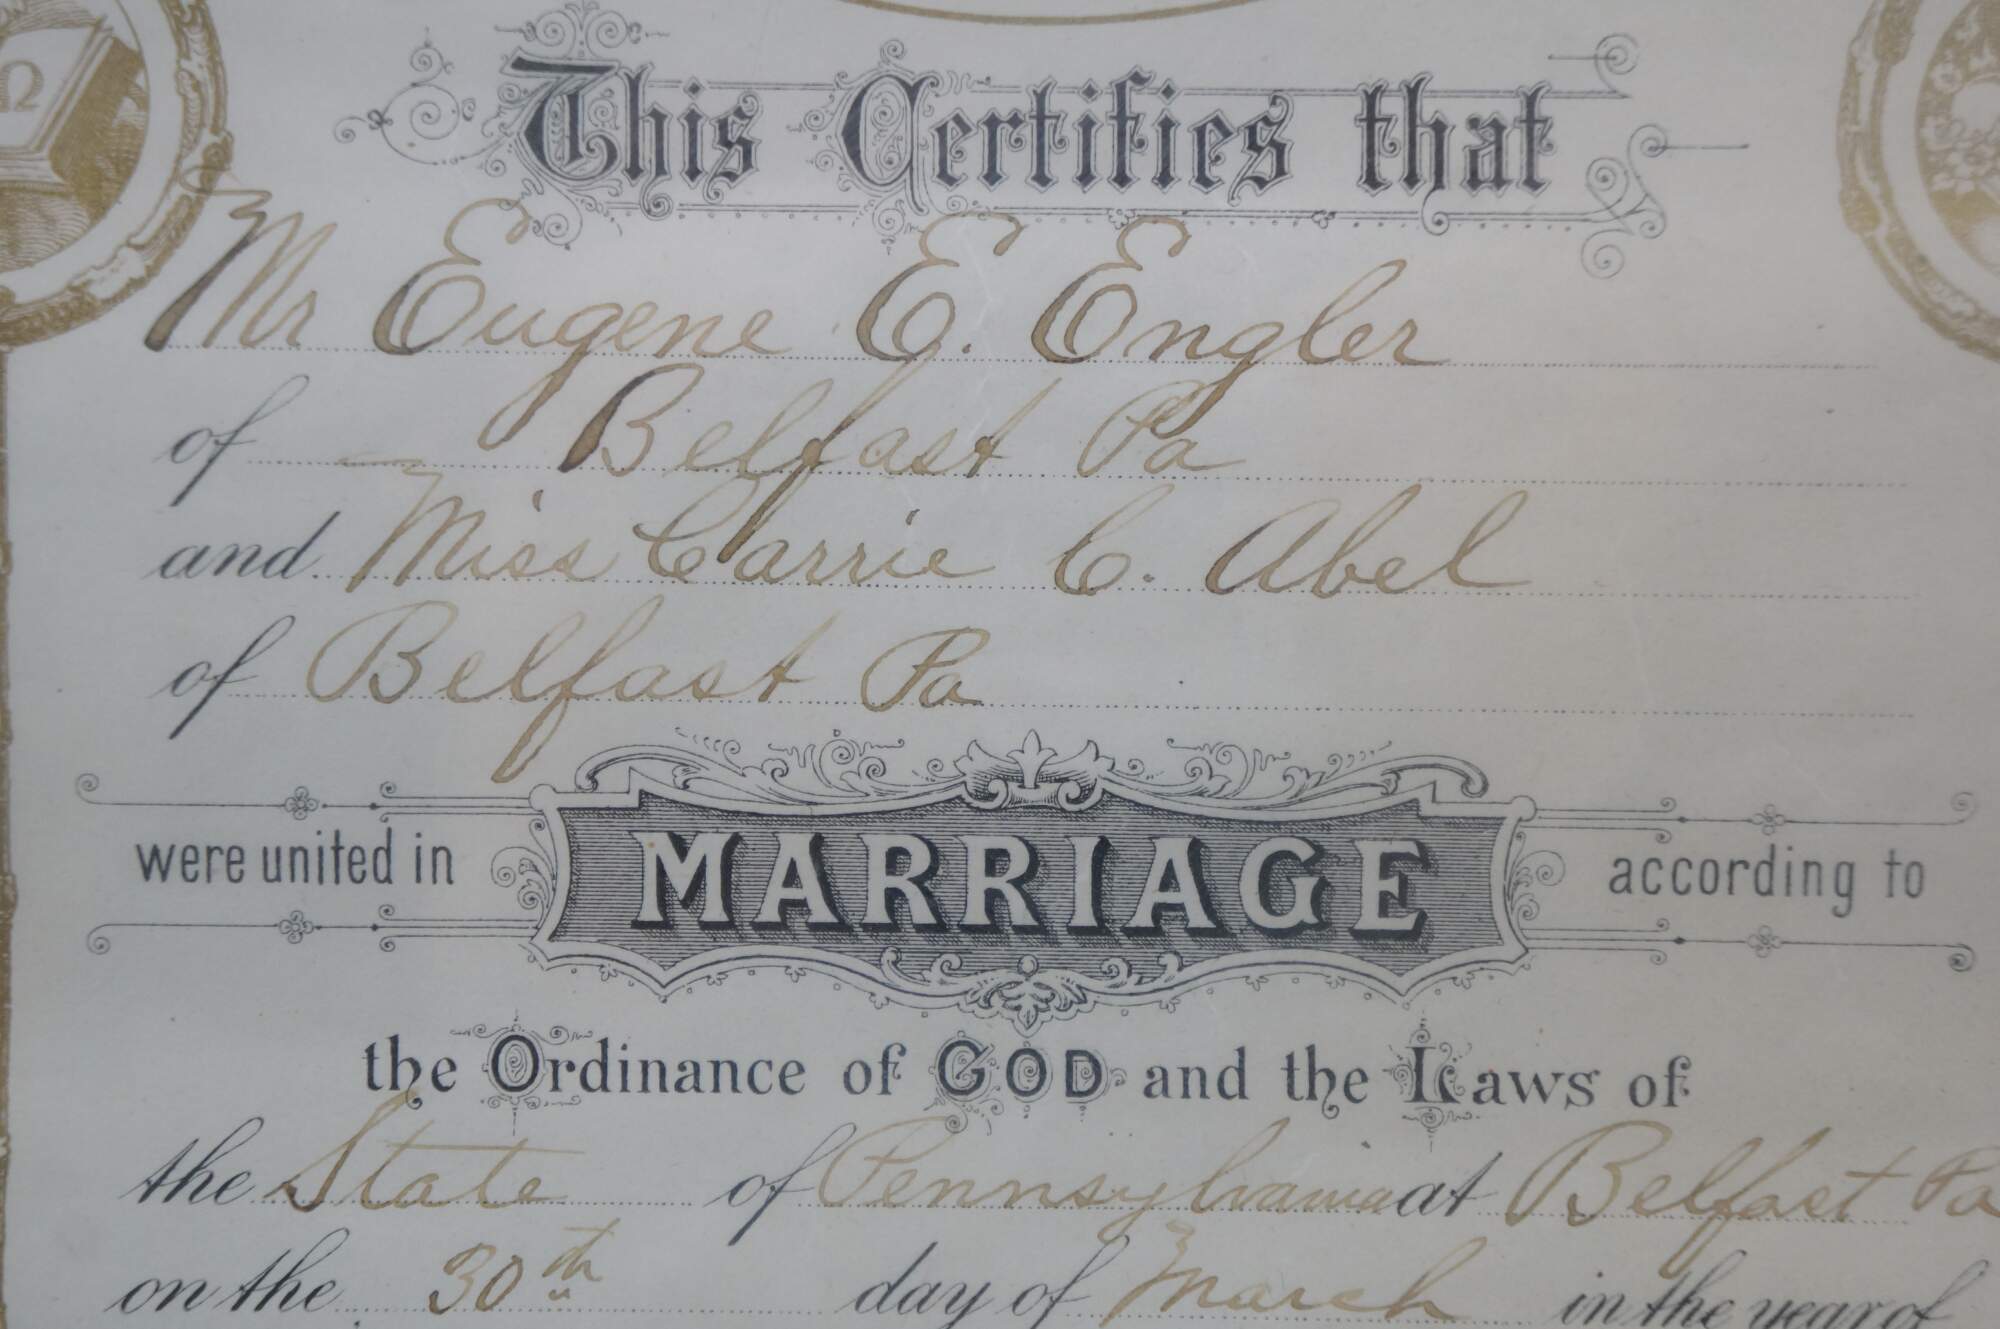 Ω
This Certifies that
Mr Eugene E. Engler
of Belfast Pa
and Miss Carrie C. Abel
of Belfast Pa
were united in MARRIAGE according to
the Ordinance of GOD and the Laws of
the State of Pennsylvania at Belfast Pa
on the 30th day of March in the year of